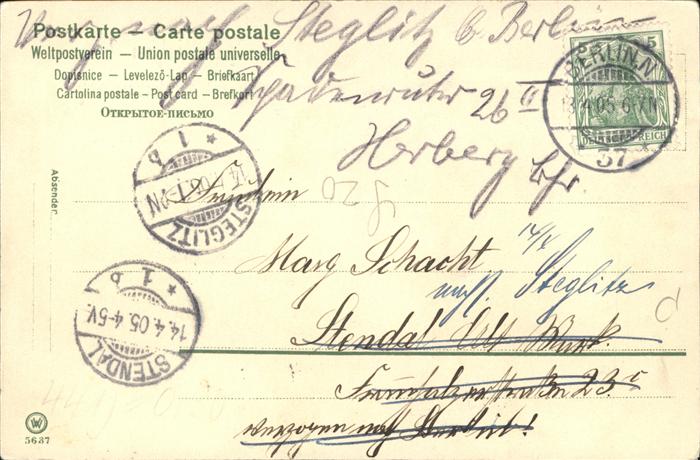 Verzogen nach Steglitz b Berlin
Postkarte – Carte postale
Weltpostverein – Union postale universelle
Dopisnice – Levelező-Lap – Briefkaart
Cartolina postale – Post card – Brefkort
Открытое-письмо
26 II
Herberg Bhf.
5
BERLIN.N.
13.4.05 6-7N
DEUTSCHES REICH
37
Absender
* 1 b
14.4.05 1-2N
STEGLITZ
Fräulein
J 20
Marg Schacht
14/4
nach Steglitz
Stendal
23 c
verzogen nach Berlin!
* 1 b
14.4.05. 4-5V.
STENDAL
5637